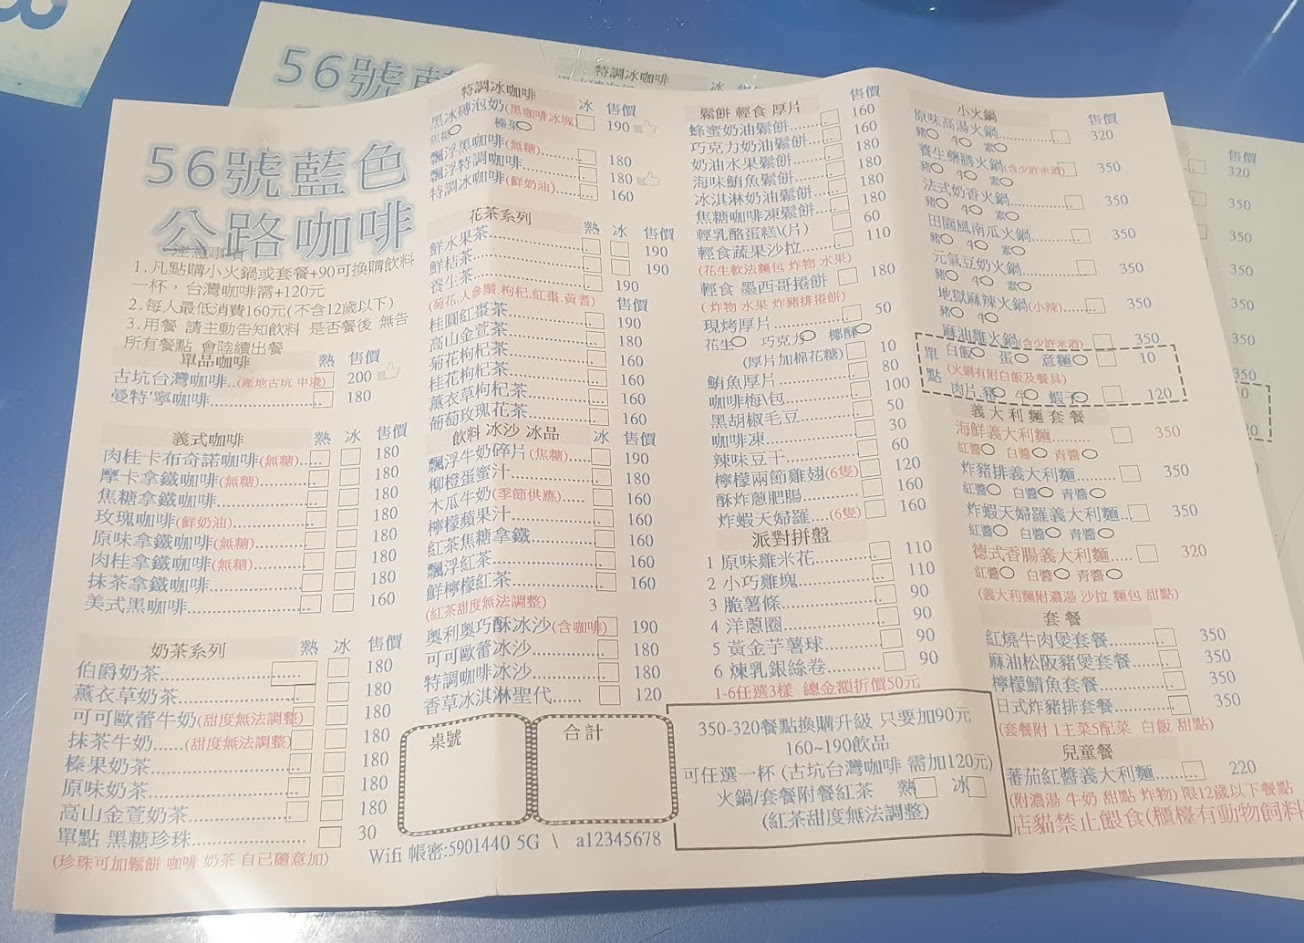 56號藍色
公路咖啡
注意事項
1.凡點購小火鍋或套餐+90可換購飲料
一杯，台灣咖啡需+120元
2.每人最低消費160元(不含12歲以下)
3.用餐 請主動告知飲料 是否餐後 無告
所有餐點 會陸續出餐
單品咖啡 熱 售價
古坑台灣咖啡..(產地古坑 中淺) 200
曼特寧咖啡 180
義式咖啡 熱 冰 售價
肉桂卡布奇諾咖啡(無糖) 180
摩卡拿鐵咖啡(無糖) 180
焦糖拿鐵咖啡 180
玫瑰咖啡(鮮奶油) 180
原味拿鐵咖啡(無糖) 180
肉桂拿鐵咖啡(無糖) 180
抹茶拿鐵咖啡 180
美式黑咖啡 160
奶茶系列 熱 冰 售價
伯爵奶茶 180
薰衣草奶茶 180
可可歐蕾牛奶(甜度無法調整) 180
抹茶牛奶(甜度無法調整) 180
榛果奶茶 180
原味奶茶 180
高山金萱奶茶 180
單點 黑糖珍珠 30
(珍珠可加鬆餅 咖啡 奶茶 自己隨意加)
特調冰咖啡 冰 售價
黑冰磚泡奶(黑咖啡冰塊) 190
焦糖 榛果
飄浮黑咖啡(無糖) 180
飄浮特調咖啡 180
特調冰咖啡(鮮奶油) 160
花茶系列 熱 冰 售價
鮮水果茶 190
鮮桔茶 190
養生茶 190
(菊花.人參鬚.枸杞.紅棗.黃耆)
桂圓紅棗茶 190
高山金萱茶 180
菊花枸杞茶 160
桂花枸杞茶 160
薰衣草枸杞茶 160
葡萄玫瑰花茶 160
飲料 冰沙 冰品 冰 售價
飄浮牛奶碎片(焦糖) 190
柳橙蛋蜜汁 180
木瓜牛奶(季節供應) 160
檸檬蘋果汁 160
紅茶焦糖拿鐵 160
飄浮紅茶 160
鮮檸檬紅茶 160
(紅茶甜度無法調整)
奧利奧巧酥冰沙(含咖啡) 190
可可歐蕾冰沙 180
特調咖啡冰沙 180
香草冰淇淋聖代 120
桌號 合計
Wifi 帳密:5901440 5G \ a12345678
鬆餅 輕食 厚片 售價
蜂蜜奶油鬆餅 160
巧克力奶油鬆餅 160
奶油水果鬆餅 180
海味鮪魚鬆餅 180
冰淇淋奶油鬆餅 180
焦糖咖啡凍鬆餅 180
輕乳酪蛋糕\(片) 60
輕食蔬果沙拉 110
(花生軟法麵包 炸物 水果)
輕食 墨西哥捲餅 180
(炸物 水果 炸豬排捲餅)
現烤厚片 50
花生 巧克力 椰酥
(厚片加棉花糖) 10
鮪魚厚片 80
咖啡梅\包 100
黑胡椒毛豆 50
咖啡凍 30
辣味豆干 60
檸檬兩節雞翅(6隻) 120
酥炸蔥肥腸 160
炸蝦天婦羅(6隻) 160
派對拼盤
1 原味雞米花 110
2 小巧雞塊 110
3 脆薯條 90
4 洋蔥圈 90
5 黃金芋薯球 90
6 煉乳銀絲卷 90
1-6任選3樣 總金額折價50元
350-320餐點換購升級 只要加90元
160~190飲品
可任選一杯 (古坑台灣咖啡 需加120元)
火鍋/套餐附餐紅茶 熱 冰
(紅茶甜度無法調整)
小火鍋 售價
原味高湯火鍋 320
豬 牛 素
養生藥膳火鍋(含少許米酒) 350
豬 牛 素
法式奶香火鍋 350
豬 牛 素
田園風南瓜火鍋 350
豬 牛 素
元氣豆奶火鍋 350
豬 牛 素
地獄麻辣火鍋(小辣) 350
豬 牛
麻油雞火鍋(含少許米酒) 350
單點 白飯 蛋 意麵 10
(火鍋有附白飯及餐具)
肉片 豬 牛 蝦子 120
義大利麵套餐
海鮮義大利麵 350
紅醬 白醬 青醬
炸豬排義大利麵 350
紅醬 白醬 青醬
炸蝦天婦羅義大利麵 350
紅醬 白醬 青醬
德式香腸義大利麵 320
紅醬 白醬 青醬
(義大利麵附濃湯 沙拉 麵包 甜點)
套餐
紅燒牛肉煲套餐 350
麻油松阪豬煲套餐 350
檸檬鯖魚套餐 350
日式炸豬排套餐 350
(套餐附 1主菜5配菜 白飯 甜點)
兒童餐
蕃茄紅醬義大利麵 220
(附濃湯 牛奶 甜點 炸物) 限12歲以下餐點
店貓禁止餵食(櫃檯有動物飼料
56號藍
特調冰咖啡
售價
320
350
350
350
350
350
350